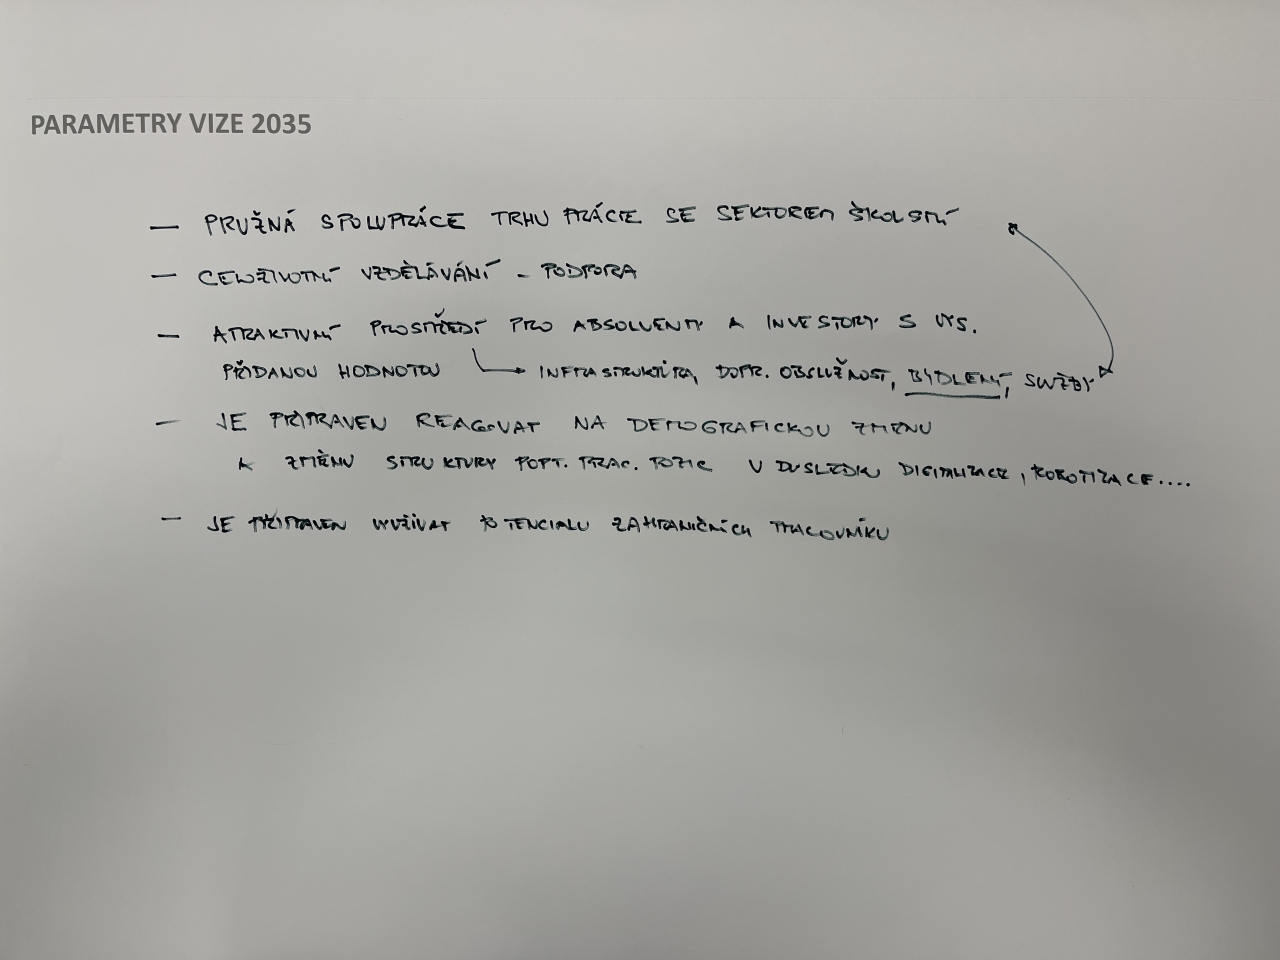 PARAMETRY VIZE 2035
— PRUŽNÁ SPOLUPRÁCE TRHU PRÁCE SE SEKTOREM ŠKOLSTVÍ
— CELOŽIVOTNÍ VZDĚLÁVÁNÍ - PODPORA
— ATRAKTIVNÍ PROSTŘEDÍ PRO ABSOLVENTY A INVESTORY S VYS.
PŘIDANOU HODNOTOU → INFRASTRUKTURA, DOPR. OBSLUŽNOST, BYDLENÍ, SLUŽBY
— JE PŘIPRAVEN REAGOVAT NA DEMOGRAFICKOU ZMĚNU
A ZMĚNU STRUKTURY POPT. PRAC. POZIC V DŮSLEDKU DIGITALIZACE, ROBOTIZACE....
— JE PŘIPRAVEN VYUŽÍVAT POTENCIALU ZAHRANIČNÍCH PRACOVNÍKU